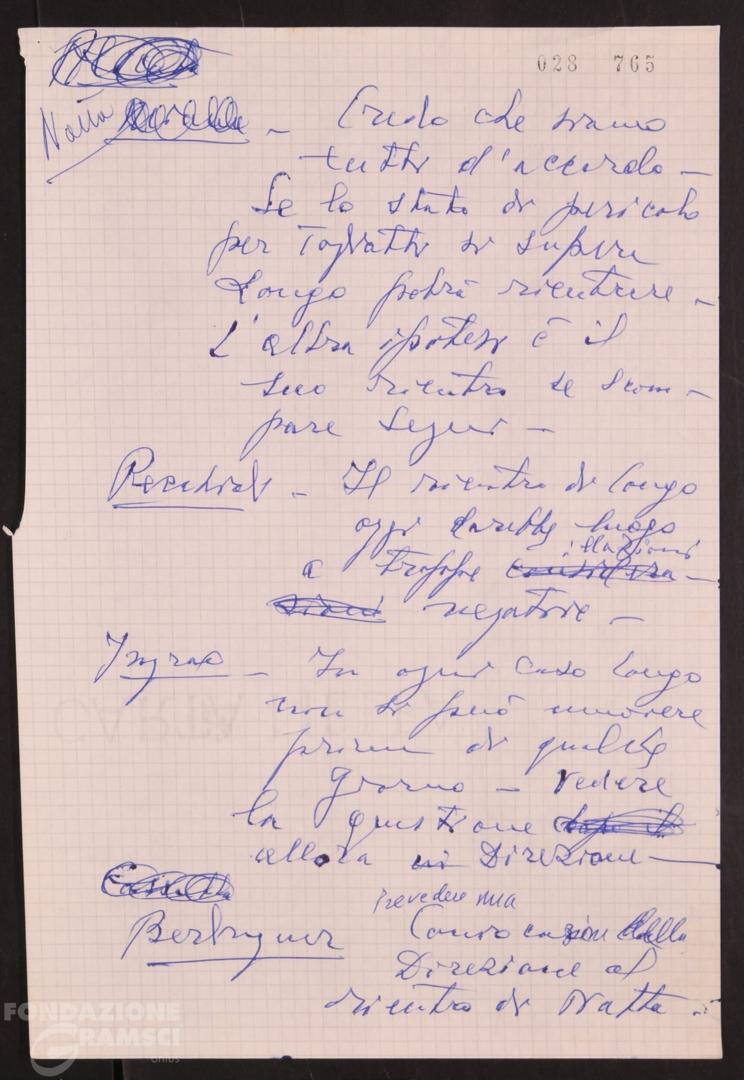 028 765
Natta – Credo che siamo
tutti d'accordo –
Se lo stato di pericolo
per Togliatti si supera
Longo potrà rientrare –
L'altra ipotesi è il
suo rientro se scom-
pare Segni –
– Il rientro di Longo
oggi darebbe luogo
illazioni
a troppe considera-
zioni negative –
Ingrao – In ogni caso Longo
non si può muovere
prima di qualche
giorno – Vedere
la questione
allora in Direzione –
prevedere una
Berlinguer Convocazione della
Direzione al
rientro di Natta –
FONDAZIONE
GRAMSCI
onlus